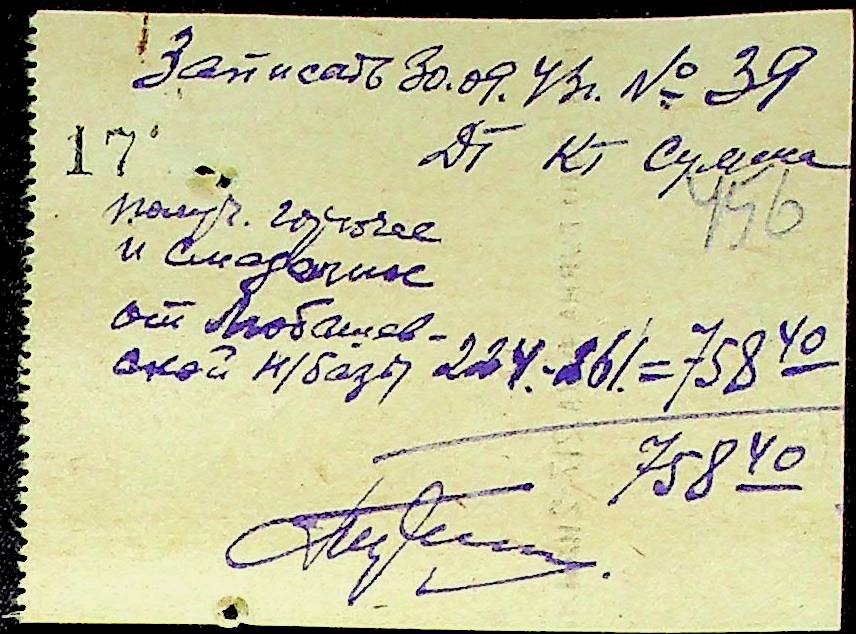 Записать 30.09.43г. № 39
17
Дт Кт Сумма
456
получ. горючее
и смазочные
от Любашев-
ской н/базы 224.- 261.= 758 40
758 40